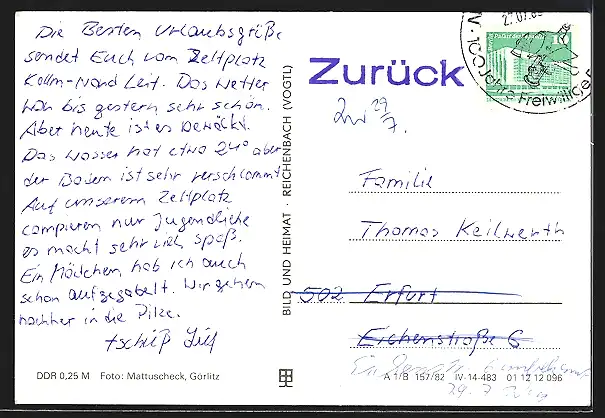 Die Besten Urlaubsgrüße
sendet Euch vom Zeltplatz
Kollm-Nord Leit. Das Wetter
war bis gestern sehr schön.
Aber heute ist es bewölkt.
Das Wasser hat etwa 24° aber
der Boden ist sehr verschlammt
Auf unserem Zeltplatz
campieren nur Jugendliche
es macht sehr viel spaß.
Ein Mädchen hab ich auch
schon aufgegabelt. Wir gehen
nachher in die Pilze.
tschüß
DDR 0,25 M Foto: Mattuscheck, Görlitz
BILD UND HEIMAT · REICHENBACH (VOGTL)
Zurück
Zur 29/7.
27.07.83
100 Jahre Freiwillige F
10
Familie
Thomas Keilwerth
502 Erfurt
Eichenstraße 6
A 1/B 157/82 IV-14-483 01 12 12 096
29.7.